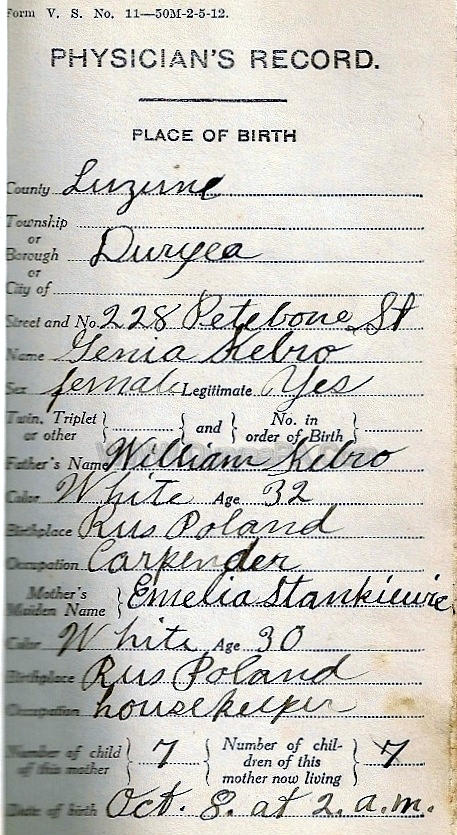 Form V. S. No. 11—50M-2-5-12.
PHYSICIAN'S RECORD.
PLACE OF BIRTH
County Luzerne
Township
or
Borough Duryea
or
City of
Street and No. 228 Petebone St
Name Genia Kebro
Sex female Legitimate Yes
Twin, Triplet or other } { and } { No. in order of Birth }
Father's Name William Kebro
Color White Age 32
Birthplace Rus Poland
Occupation Carpender
Mother's Maiden Name } Emelia Stankiewic
Color White Age 30
Birthplace Rus Poland
Occupation housekeeper
Number of child of this mother } 7 { Number of chil- dren of this mother now living } 7
Date of birth Oct. 8. at 2. a.m.